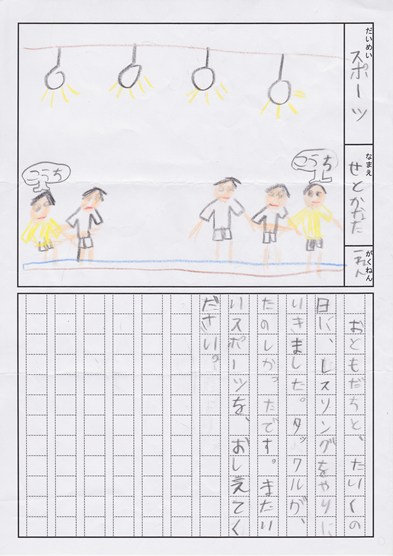 だいめい
スポーツ
なまえ
がくねん
一ねん
おともだちと、たいくの
日に、レスリングをやりに
いきました。タックルが、
たのしかったです。またい
いスポーツを、おしえてく
ださい?